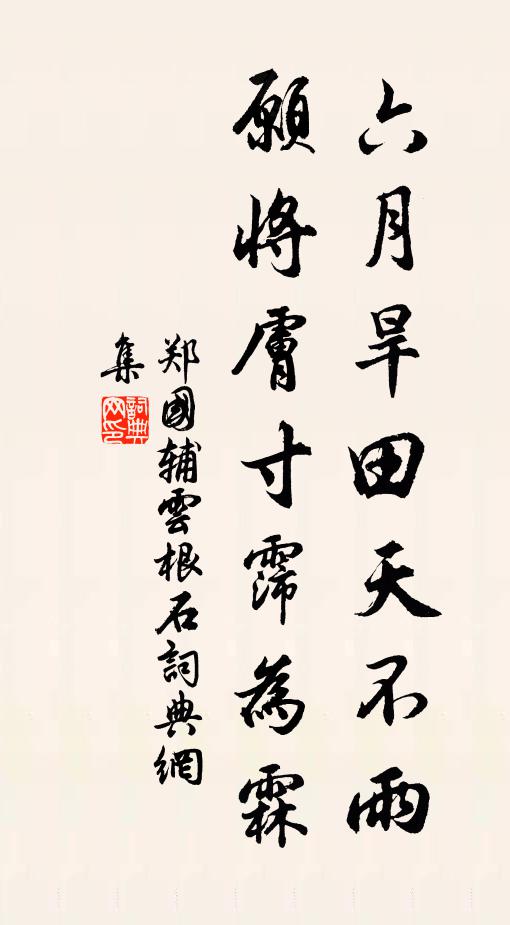 六月旱田天不雨
願將膚寸霈為霖
郑國辅雲根石詞典網
集
詞典
网印